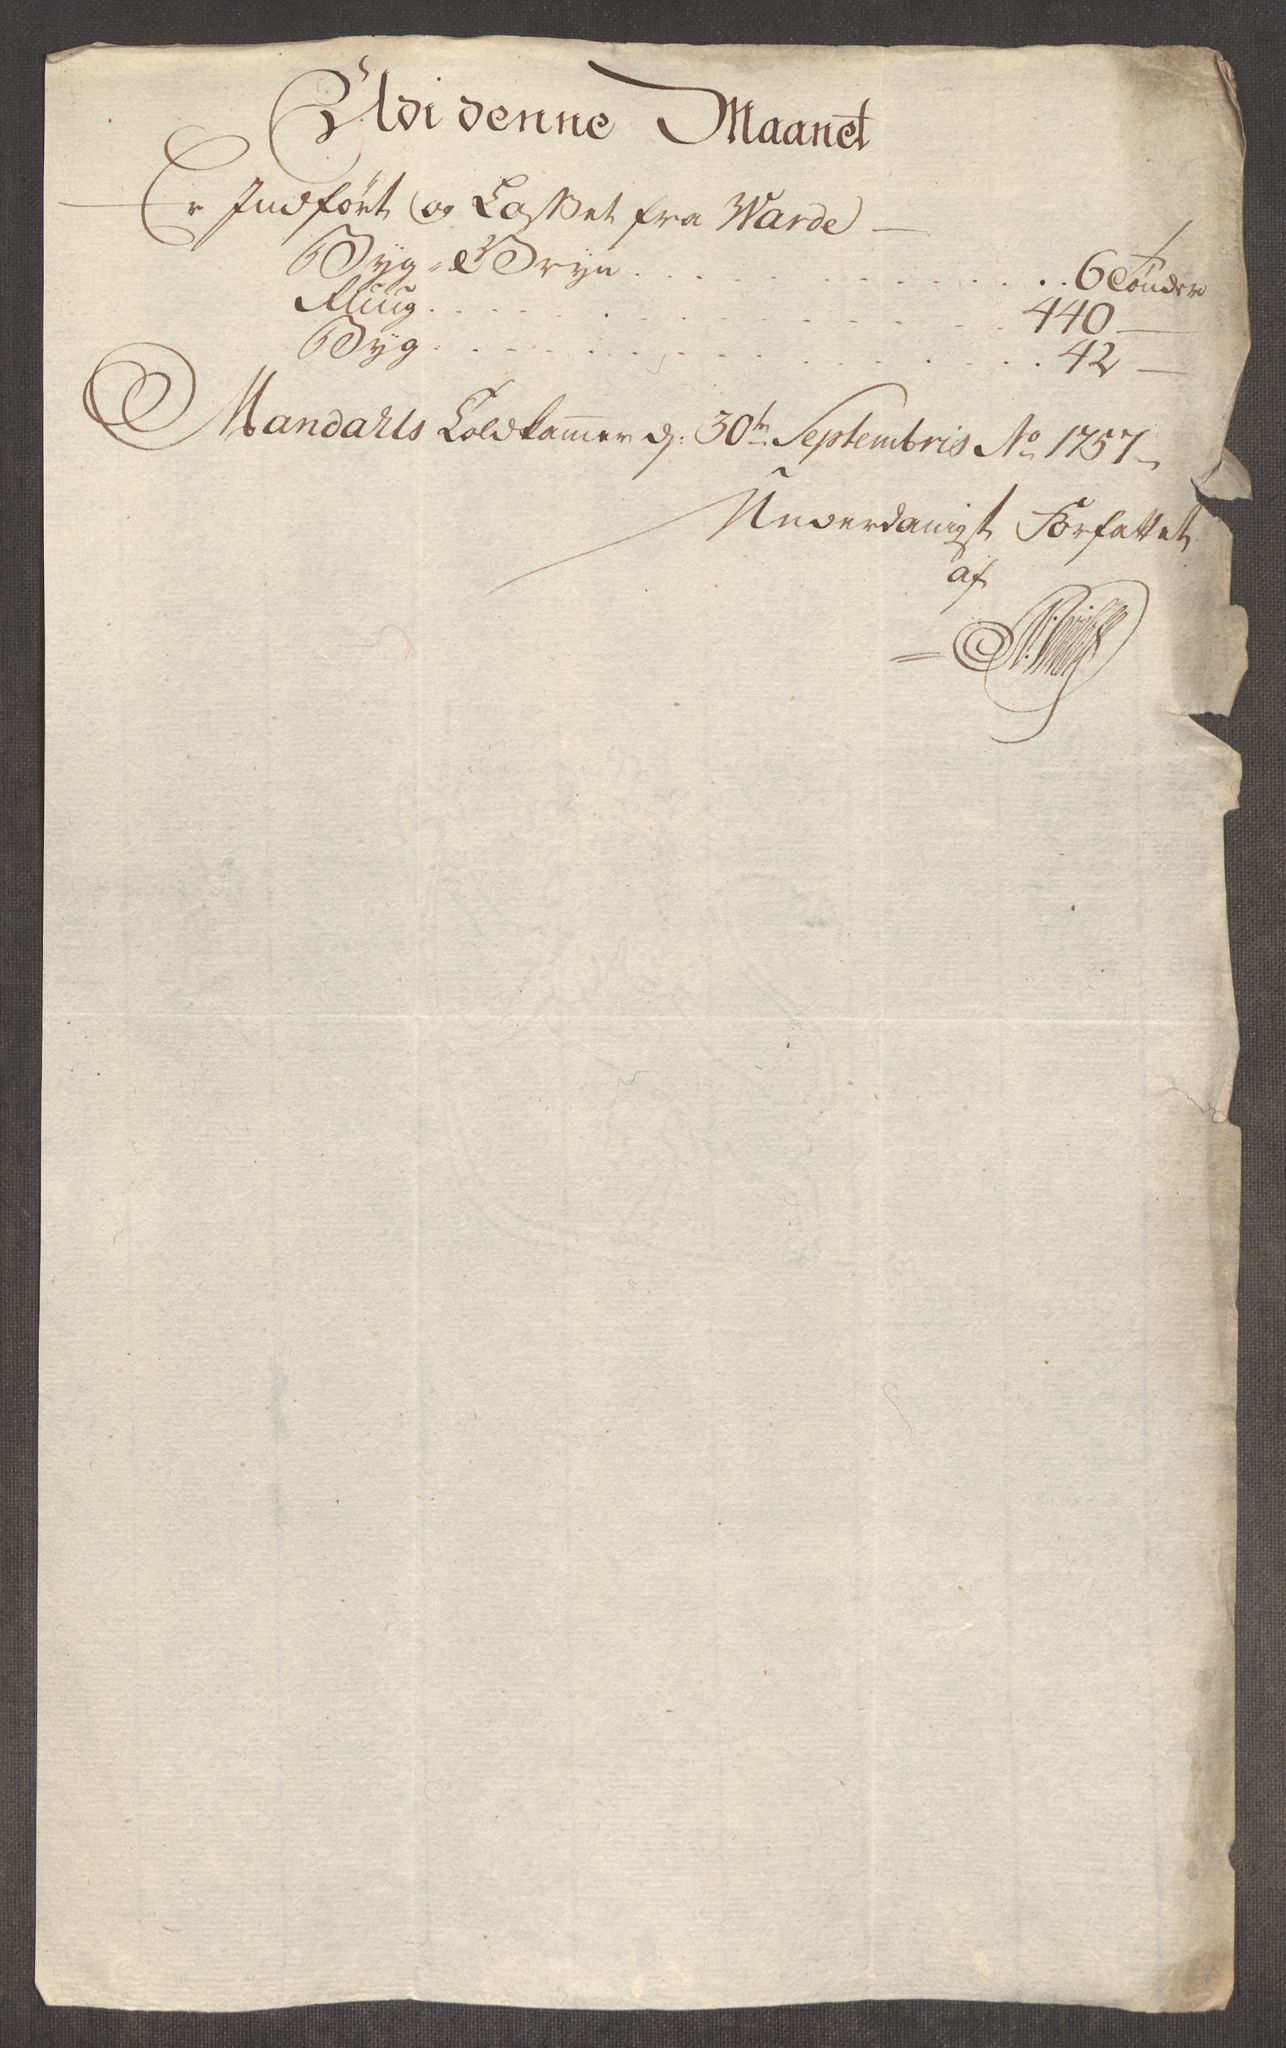 Udi denne Maanet
Er Indført og Losset fra Warde —
Byg-Gryn . . . . . 6 Tønder
Rug . . . . . 440 —
Byg . . . . . 42 —
Mandahls Toldkamer d: 30te Septembris Ao 1757
Underdanigst Forfattet
af